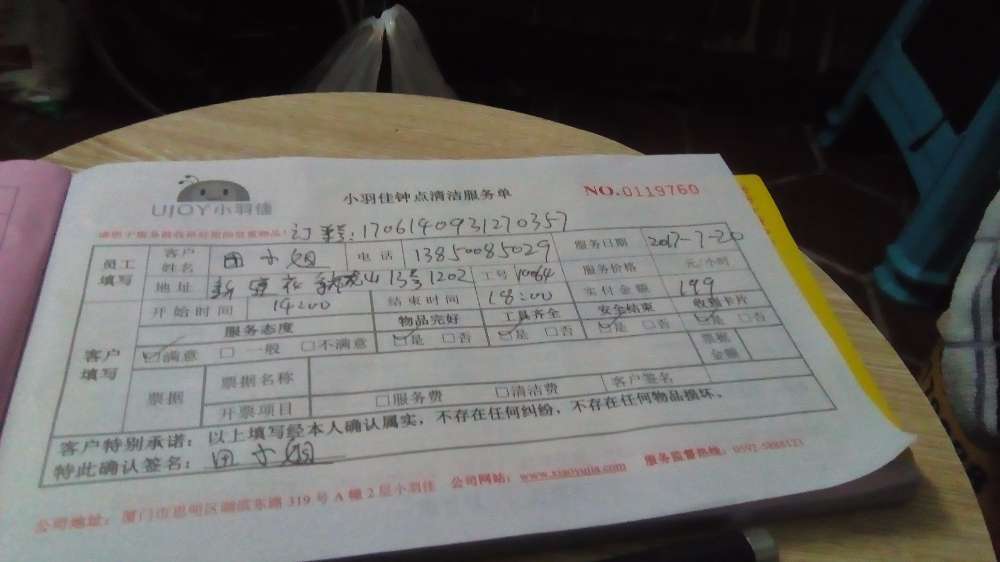 UJOY小羽佳
小羽佳钟点清洁服务单
NO.0119760
订单号:1706140931270357
员工填写
客户姓名 田小姐 电话 13850085029 服务日期 2017-7-20
地址 13号1202 工号 10064 服务价格 元/小时
开始时间 14:00 结束时间 18:00 实付金额 199
客户填写
服务态度 物品完好 工具齐全 安全结束 收到卡片
☑满意 □一般 □不满意 ☑是 □否 ☑是 □否 ☑是 □否 ☑是 □否
票据 票据名称 票据金额
开票项目 □服务费 □清洁费 客户签名
客户特别承诺:以上填写经本人确认属实,不存在任何纠纷,不存在任何物品损坏。
特此确认签名:田小姐
公司地址:厦门市思明区湖滨东路319号A幢2层小羽佳 公司网站:www.xiaoyujia.com 服务监督热线:0592-5888123